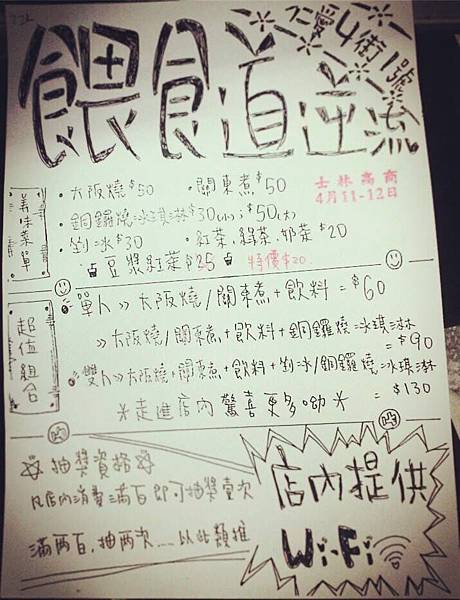 餵食道逆流
仁愛4街1號
美味菜單
・大阪燒$50 ・關東煮$50
・銅鑼燒冰琪淋$30(小);$50(大)
・剉冰$30 ・紅茶、綠茶、奶茶$20
豆漿紅茶$25 特價$20
士林高商
4月11-12日
超值組合
單人>>大阪燒/關東煮+飲料=$60
>>大阪燒/關東煮+飲料+銅鑼燒冰琪淋
=$90
雙人>>大阪燒,關東煮+飲料+剉冰/銅鑼燒冰琪淋
=$130
※走進店內驚喜更多呦※
抽獎資格
凡店內消費滿百即可抽獎壹次
滿兩百,抽兩次……以此類推
店內提供
Wi-Fi